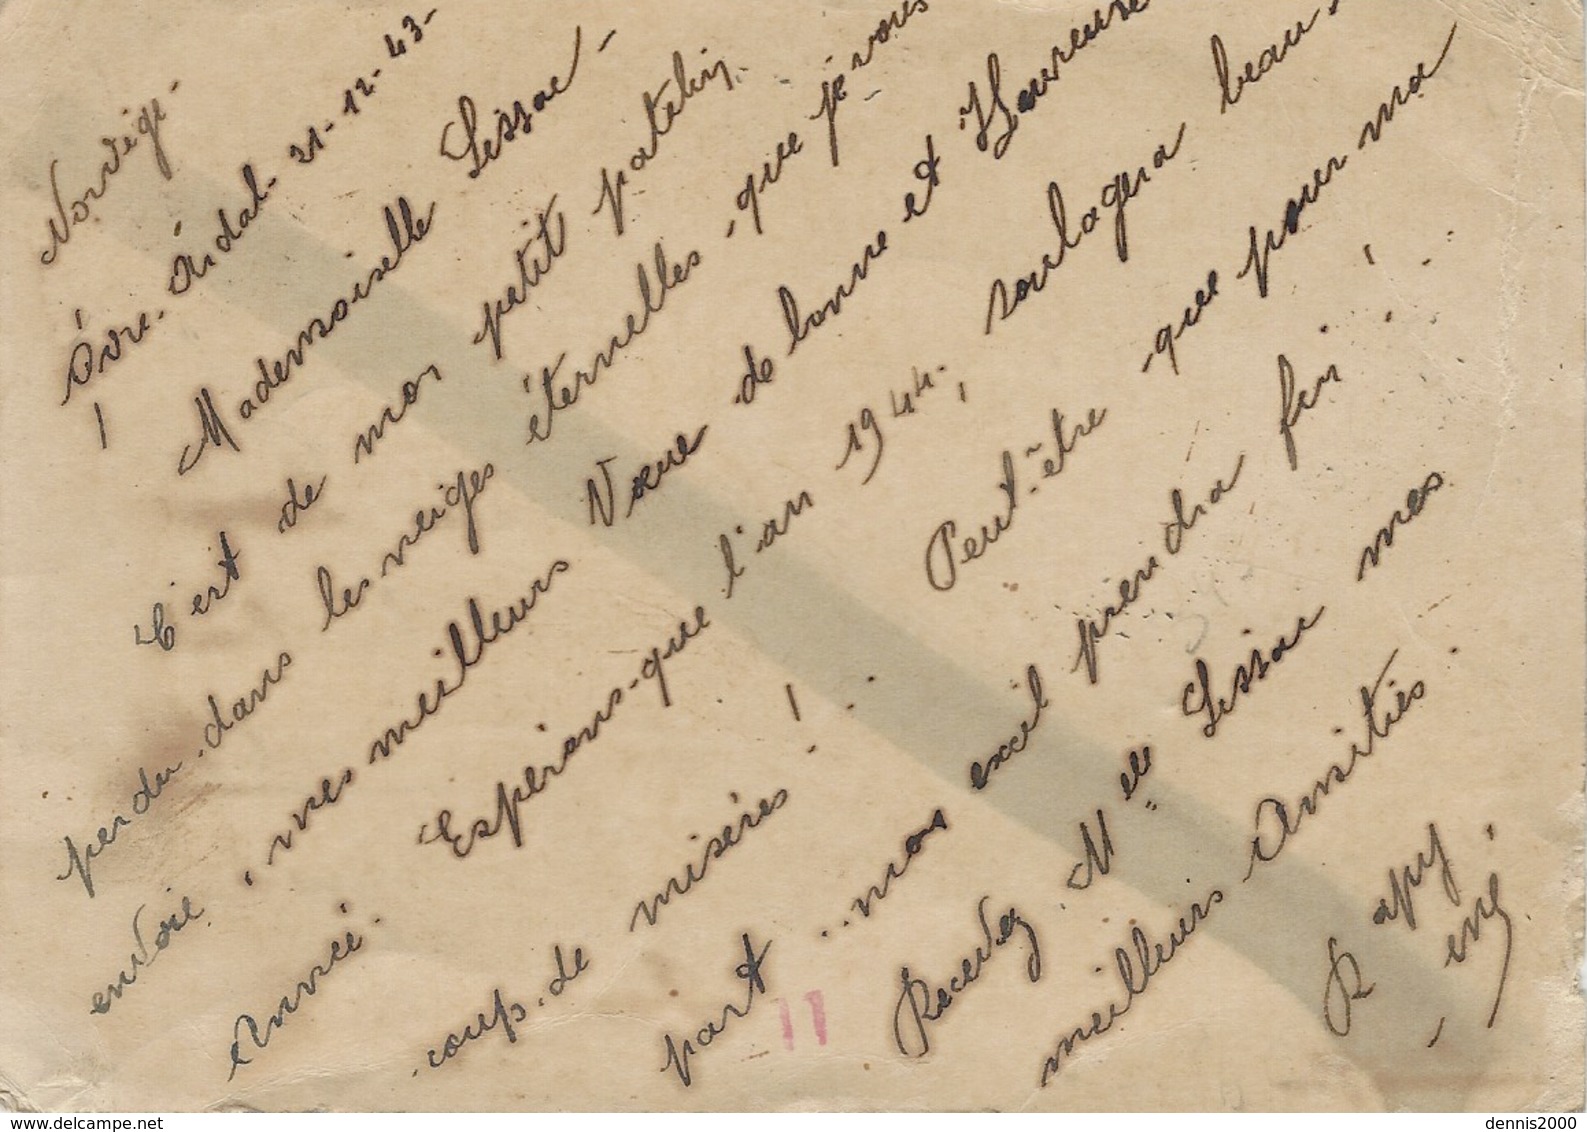 Norvège.
Övre. Årdal. 21-12-43-
Mademoiselle Lissac -
C'est de mon petit patelin
perdu dans les neiges éternelles que je vous
envoie, mes meilleurs Vœue de bonne et Heureuse
Année. Espérons-que l'an 1944, soulagera beau-
coup de misères !
Peut-être que pour ma
part.. mon exil prendra fin !
Recevez Mlle Lissac mes
meilleurs Amitiés.
Rapy
René
11
www.delcampe.net
dennis2000